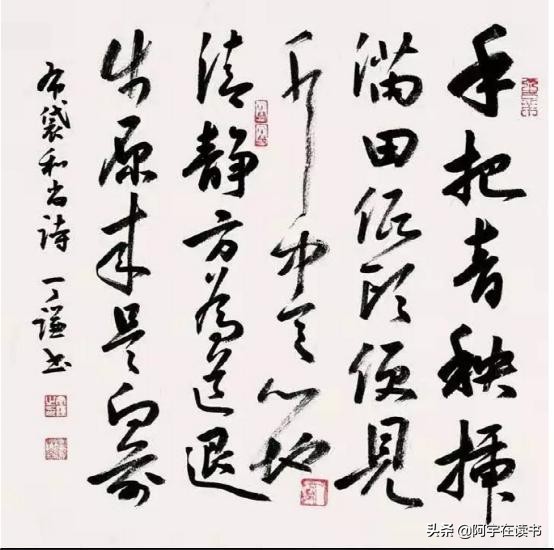 手把青秧插
满田低头便見
水中天心地
清静方為道退
步原来是向前
布袋和尚诗 丁谦书
头条 @阿宇在读书